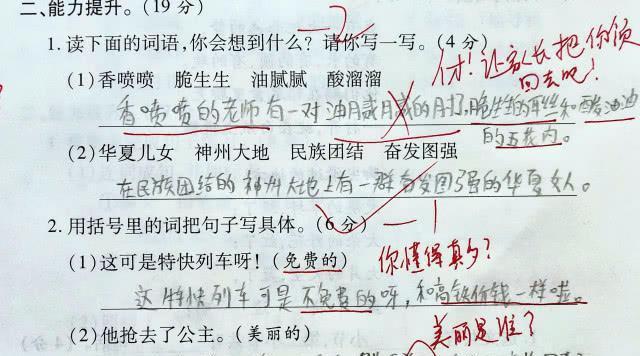 二、能力提升。(19 分)
-2
1. 读下面的词语,你会想到什么? 请你写一写。(4 分)
(1)香喷喷 脆生生 油腻腻 酸溜溜
香喷喷的老师有一对
和酸油油
的五花肉。
让家长把你领
回去吧!
(2)华夏儿女 神州大地 民族团结 奋发图强
在民族团结的神州大地上有一群奋发图强的华夏女人。
2. 用括号里的词把句子写具体。(6 分)
-1
(1)这可是特快列车呀! (免费的)
你懂得真多?
这特快列车可是不免费的呀,和高铁价钱一样啦。
(2)他抢去了公主。(美丽的)
美丽是谁?